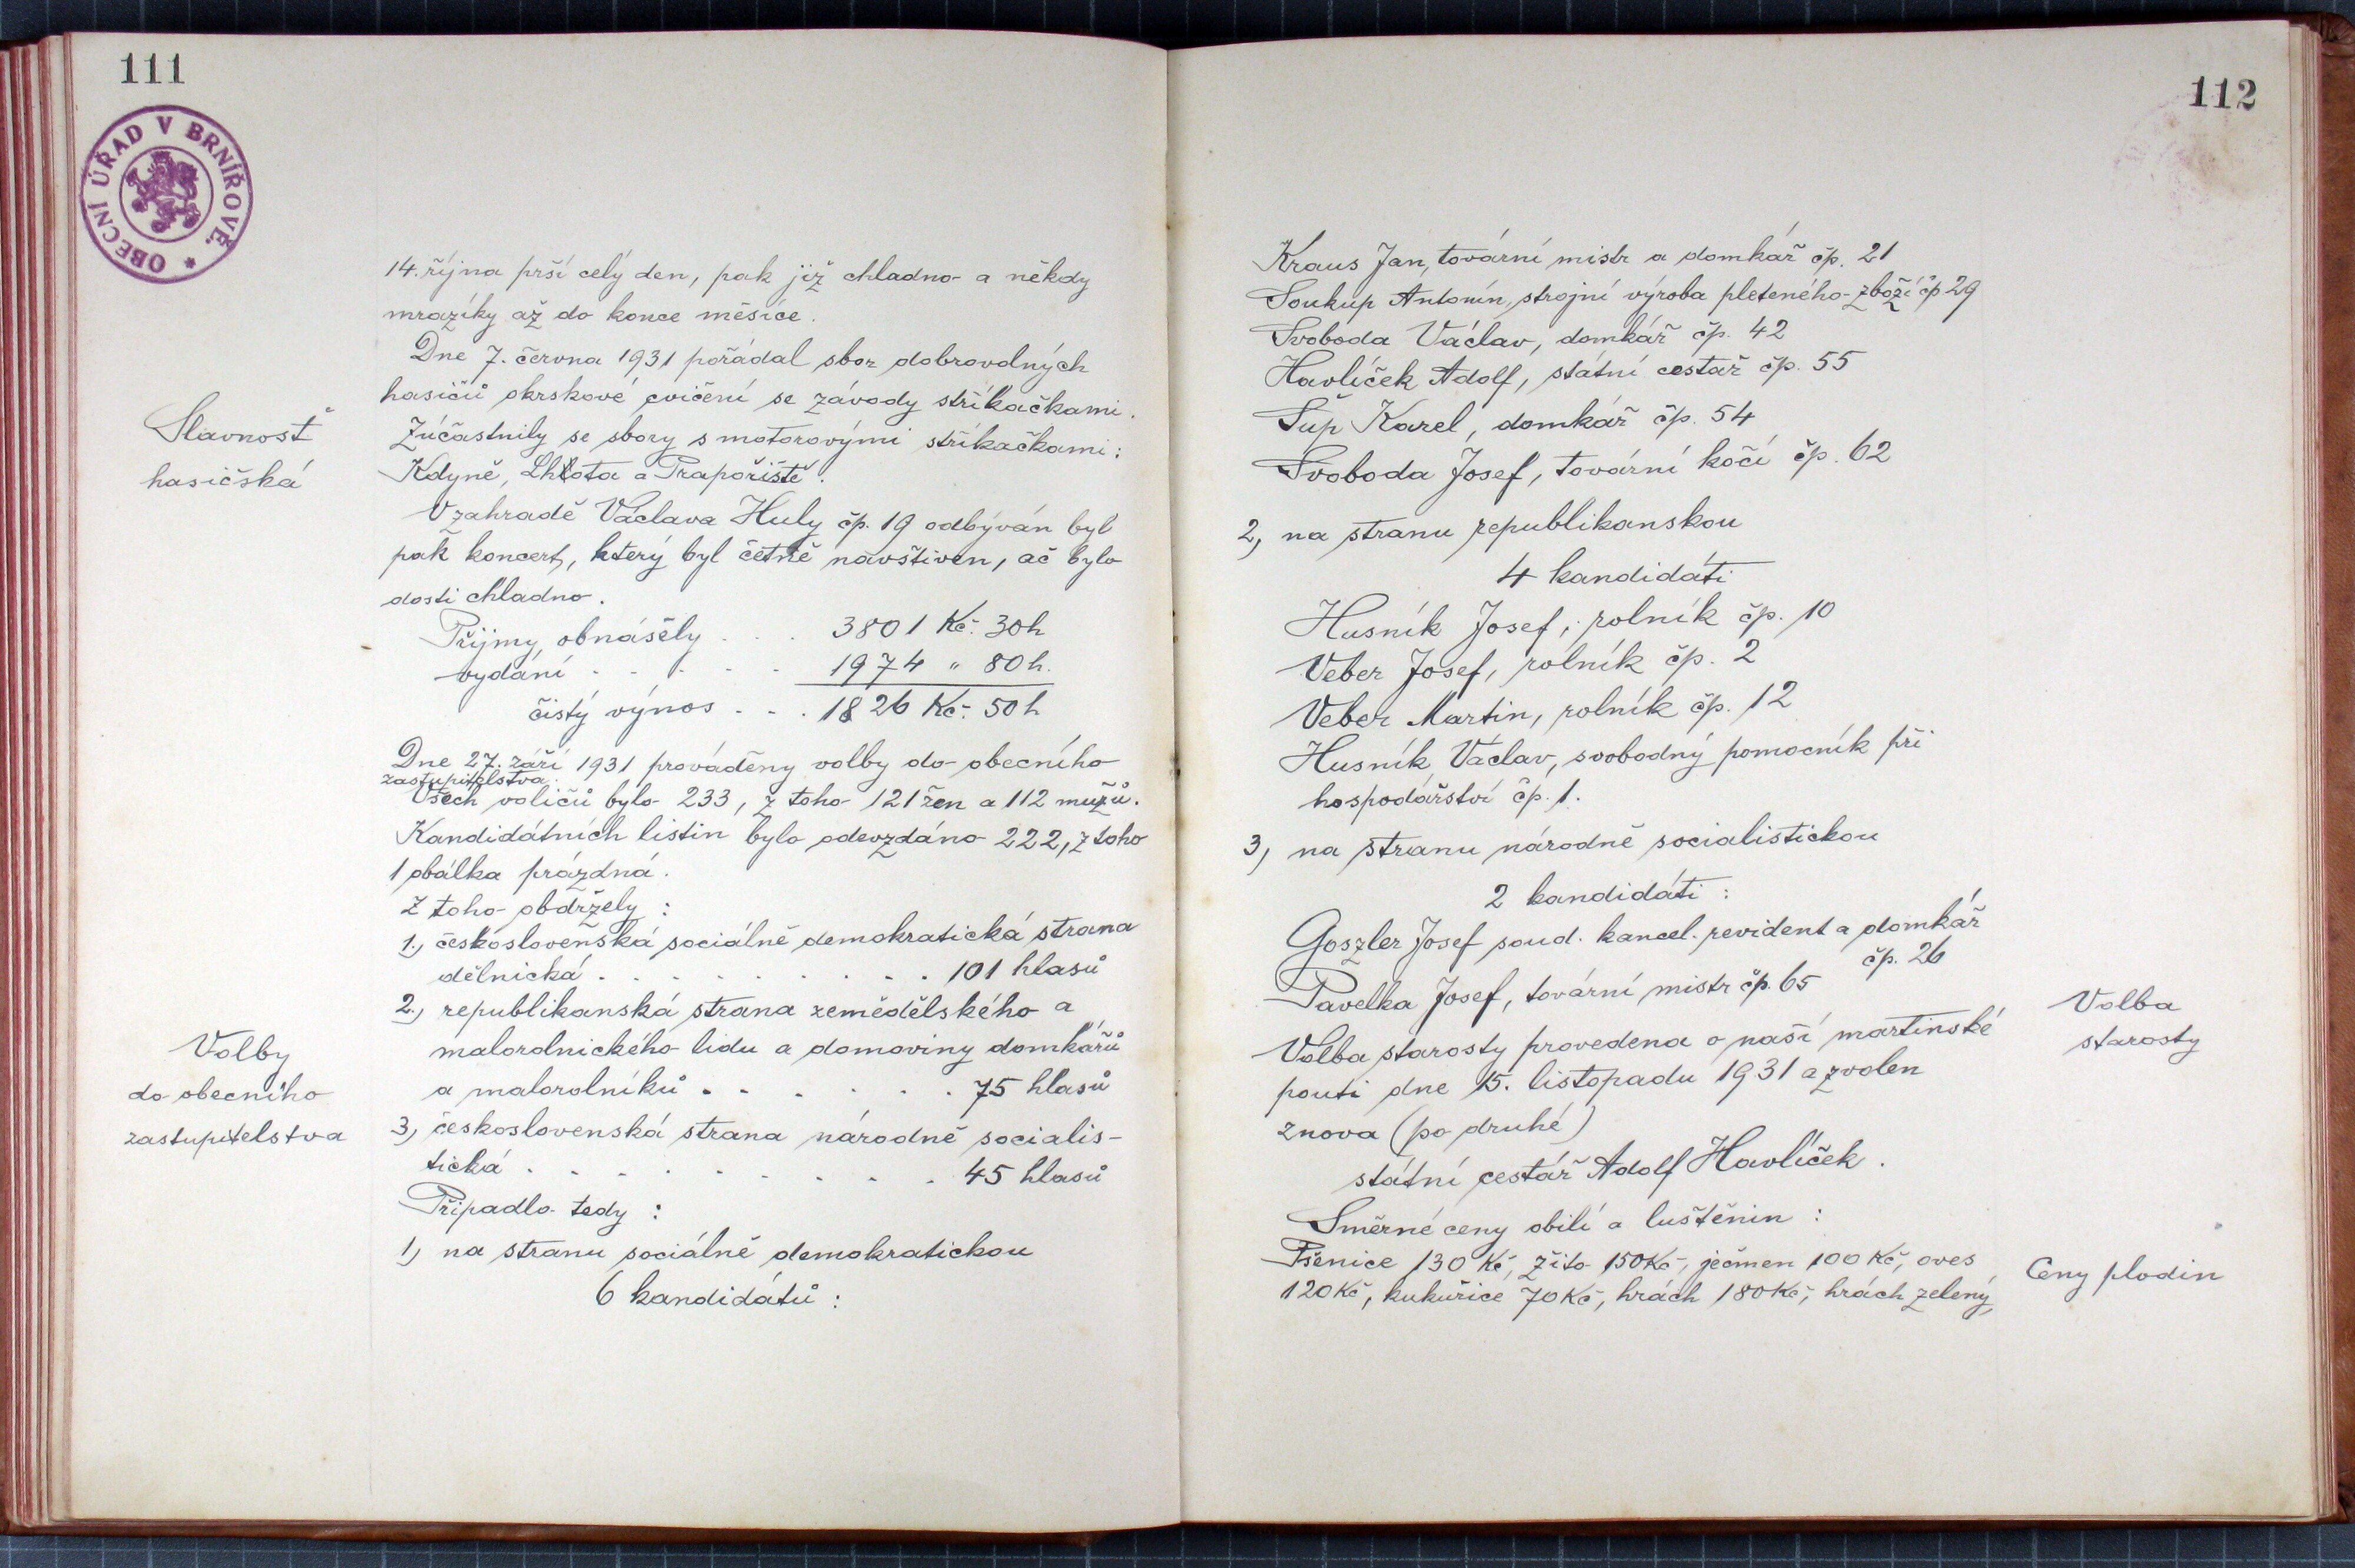 111
OBECNÍ ÚŘAD V BRNÍŘOVĚ. *
14. října prší celý den, pak již chladno a někdy
mrazíky až do konce měsíce.
Dne 7. června 1931 pořádal sbor dobrovolných
hasičů okrskové cvičení se závody stříkačkami.
Slavnosť
hasičská
Zúčastnily se sbory s motorovými stříkačkami:
Kdyně, Lhota a Prapořiště.
V zahradě Václava Huly čp. 19 odbýván byl
pak koncert, který byl četně navštíven, ač bylo
dosti chladno.
Příjmy obnášely . . . 3801 Kč. 30h
vydání . . . . . 1974 „ 80h.
čistý výnos . . . 1826 Kč. 50h
Dne 27. září 1931 prováděny volby do obecního
zastupitelstva.
Všech voličů bylo 233, z toho 121 žen a 112 mužů.
Kandidátních listin bylo odevzdáno 222, z toho
1 obálka prázdná.
Z toho obdržely :
1., československá sociálně demokratická strana
dělnická . . . . . . . . . 101 hlasů
2., republikanská strana zemědělského a
malorolnického lidu a domoviny domkářů
a malorolníků . . . . . . 75 hlasů
Volby
do obecního
zastupitelstva
3, československá strana národně socialis-
tická . . . . . . . . . . 45 hlasů
Připadlo tedy :
1, na stranu sociálně demokratickou
6 kandidátů :
112
Kraus Jan, tovární mistr a domkář čp. 21
Soukup Antonín, strojní výroba pleteného zboží čp 29
Svoboda Václav, domkář čp. 42
Havlíček Adolf, státní cestář čp. 55
Šup Karel, domkář čp. 54
Svoboda Josef, tovární kočí čp. 62
2, na stranu republikanskou
4 kandidáti
Husník Josef, rolník čp. 10
Veber Josef, rolník čp. 2
Veber Martin, rolník čp. 12
Husník Václav, svobodný pomocník při
hospodářství čp. 1.
3, na stranu národně socialistickou
2 kandidáti :
Goszler Josef soud. kancel. revident a domkář
čp. 26
Pavelka Josef, tovární mistr čp. 65
Volba starosty provedena o naší martinské
pouti dne 15. listopadu 1931 a zvolen
znova (po druhé)
Volba
starosty
státní cestář Adolf Havlíček.
Směrné ceny obilí a luštěnin :
Pšenice 130 Kč, žito 150Kč, ječmen 100 Kč, oves
120Kč, kukuřice 70Kč, hrách 180Kč, hrách zelený,
Ceny plodin